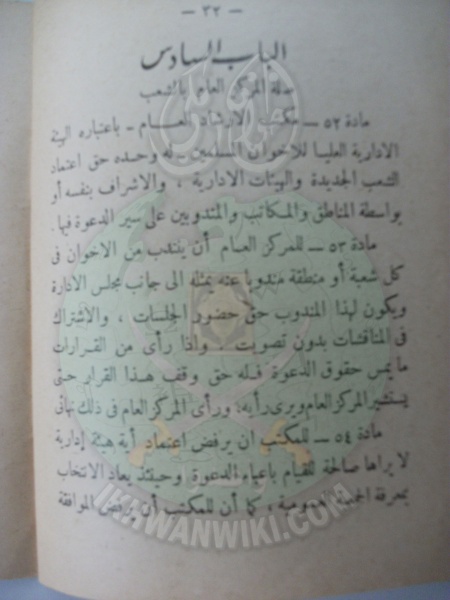 — ٣٢ —
الباب السادس
صلة المركز العام بالشعب
مادة ٥٢ — مكتب الارشاد العـام - باعتباره الهيئة
الادارية العليا للاخوان المسلمين - له وحده حق اعتماد
الشعب الجديدة والهيئات الادارية ، والاشراف بنفسه أو
بواسطة المناطق والمكاتب والمندوبين على سير الدعوة فيها .
مادة ٥٣ — للمركز العـام أن ينتدب من الاخوان فى
كل شعبة أو منطقة مندوبا عنه يمثله الى جانب مجلس الادارة
ويكون لهذا المندوب حق حضور الجلسات ، والاشتراك
فى المناقشات بدون تصويت . واذا رأى من القـرارات
ما يمس حقوق الدعوة فـله حق وقف هـذا القرار حتى
يستشير المركز العام ويرى رأيه، ورأى المركز العام فى ذلك نهائى
مادة ٥٤ — للمكتب ان يرفض اعتماد أية هيئة إدارية
لا يراها صالحة للقيام باعباء الدعوة وحينئذ يعاد الانتخاب
بمعرفة الجمعية العمومية ، كما أن للمكتب أن يرفض الموافقة
IKHWANWIKI.COM